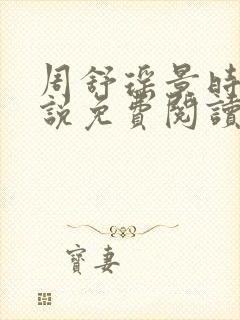 周舒瑶景时
說免費閱讀
寳妻